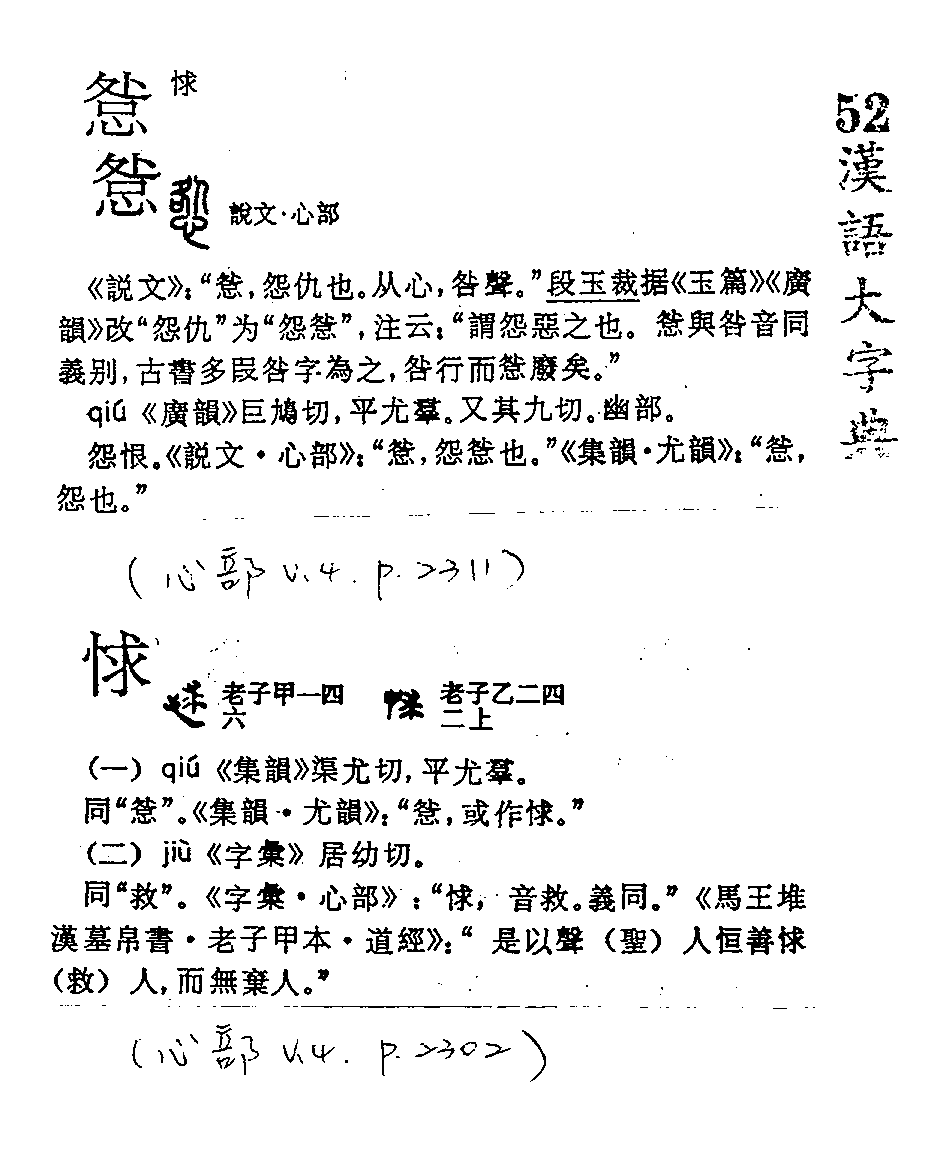 52
漢語大字典
㤹 㤹
惄
說文·心部
《説文》：“惄，怨仇也。从心，咎聲。”段玉裁据《玉篇》《廣
韻》改“怨仇”为“怨惄”，注云：“謂怨惡之也。惄與咎音同
義别，古書多叚咎字為之，咎行而惄廢矣。”
qiú《廣韻》巨鳩切，平尤羣。又其九切。幽部。
怨恨。《説文·心部》：“惄，怨惄也。”《集韻·尤韻》：“惄，
怨也。”
（心部 v.4. p.2311）
㤹
老子甲一四
六
老子乙二四
二上
（一）qiú《集韻》渠尤切，平尤羣。
同“惄”。《集韻·尤韻》：“惄，或作㤹。”
（二）jiù《字彙》居幼切。
同“救”。《字彙·心部》：“㤹，音救。義同。”《馬王堆
漢墓帛書·老子甲本·道經》：“是以聲（聖）人恒善㤹
（救）人，而無棄人。”
（心部 v.4. p.2302）